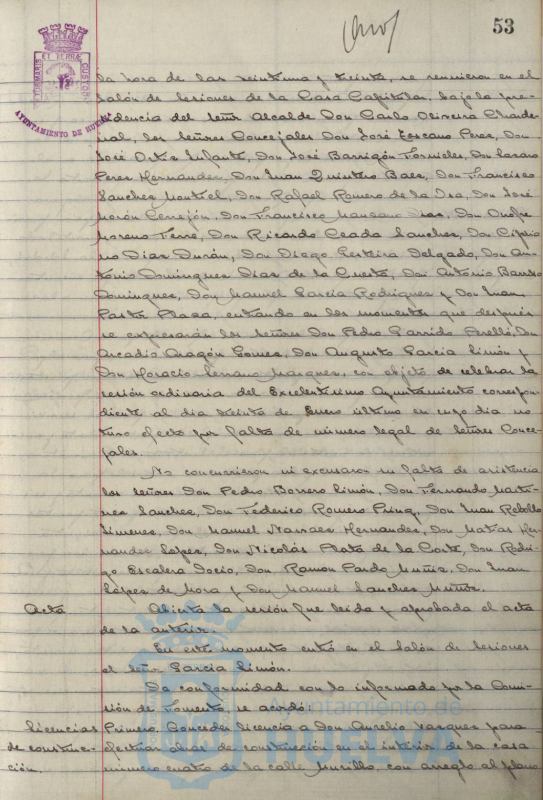 53
AYUNTAMIENTO DE HUELVA
la hora de las veintiuna y treinta, se reunieron en el
Salón de Sesiones de la Casa Capitular, bajo la pre-
sidencia del señor Alcalde Don Carlos Oliveira Chardé-
nal, los señores Concejales Don José Lescano Perez, Don
José Ortiz Infante, Don José Barrigón Fornieles, Don Lazaro
Perez Hernandez, Don Juan Quintero Baez, Don Francisco
Sanchez Montiel, Don Rafael Romero de la Osa, Don José
Morón Cerrejón, Don Francisco Manzano Diaz, Don Onofre
Moreno Ferré, Don Ricardo Ceada Sanchez, Don Cipria
no Diaz Durán, Don Diego Lesteira Delgado, Don An-
tonio Dominguez Diaz de la Cuesta, Don Antonio Barroso
Dominguez, Don Manuel Garcia Rodriguez y Don Juan
Plaza, entrando en los momentos que después
se expresarán los señores Don Pedro Garrido Perelló, Don
Arcadio Aragón Gomez, Don Augusto Garcia Limón y
Don Horacio Serrano Marquez, con objeto de celebrar la
sesión ordinaria del Excelentisimo Ayuntamiento correspon-
diente al dia treinta de Enero último en cuyo dia no
tuvo efecto por falta de número legal de señores Conce-
jales.
No concurrieron ni excusaron su falta de asistencia
los señores Don Pedro Borrero Limón, Don Fernando Marti-
nez Sanchez, Don Federico Romero Don Juan Rebollo
Jimenez, Don Manuel Narvaez Hernandez, Don Matias Her-
nandez Lopez, Don Nicolás Plata de la Corte, Don Rodri-
go Escalera Don Ramon Pardo Don Juan
López de Mora y Don Manuel Sanchez Muñoz.
Acta
Abierta la sesión fué leida y aprobada el acta
de la anterior.
En este momento entró en el Salón de Sesiones
el señor Garcia Limón.
De conformidad con lo informado por la Comi-
sión de Fomento, se acordó:
Licencias
de construc-
ción.
Primero. Conceder licencia a Don Aurelio Vazquez para
efectuar obras de construcción en el interior de la casa
número cuatro de la calle Murillo, con arreglo al plano
Ayuntamiento de
HUELVA